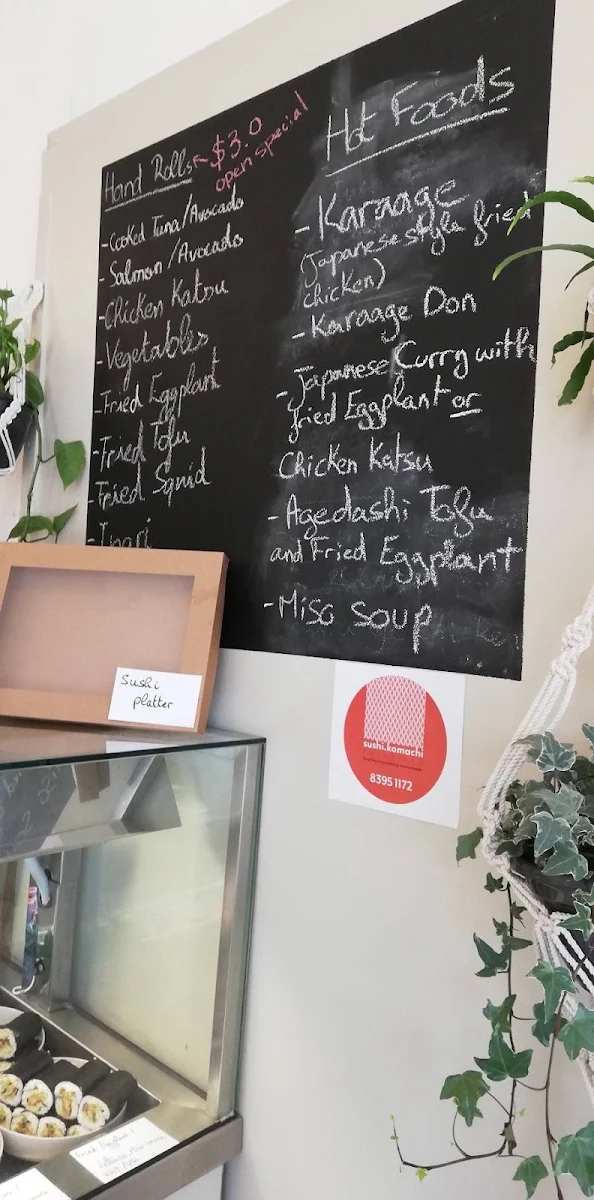 Hand Rolls
$3.0
open special
-Cooked Tuna/Avocado
-Salmon/Avocado
-Chicken Katsu
-Vegetables
-Fried Eggplant
-Fried Tofu
-Fried Squid
-Inari
Hot Foods
-Karaage
(Japanese style fried
chicken)
-Karaage Don
-Japanese Curry with
fried Eggplant or
Chicken Katsu
-Agedashi Tofu
and Fried Eggplant
-Miso soup
Sushi
platter
sushi.komachi
8395 1172
Fried Eggplant!